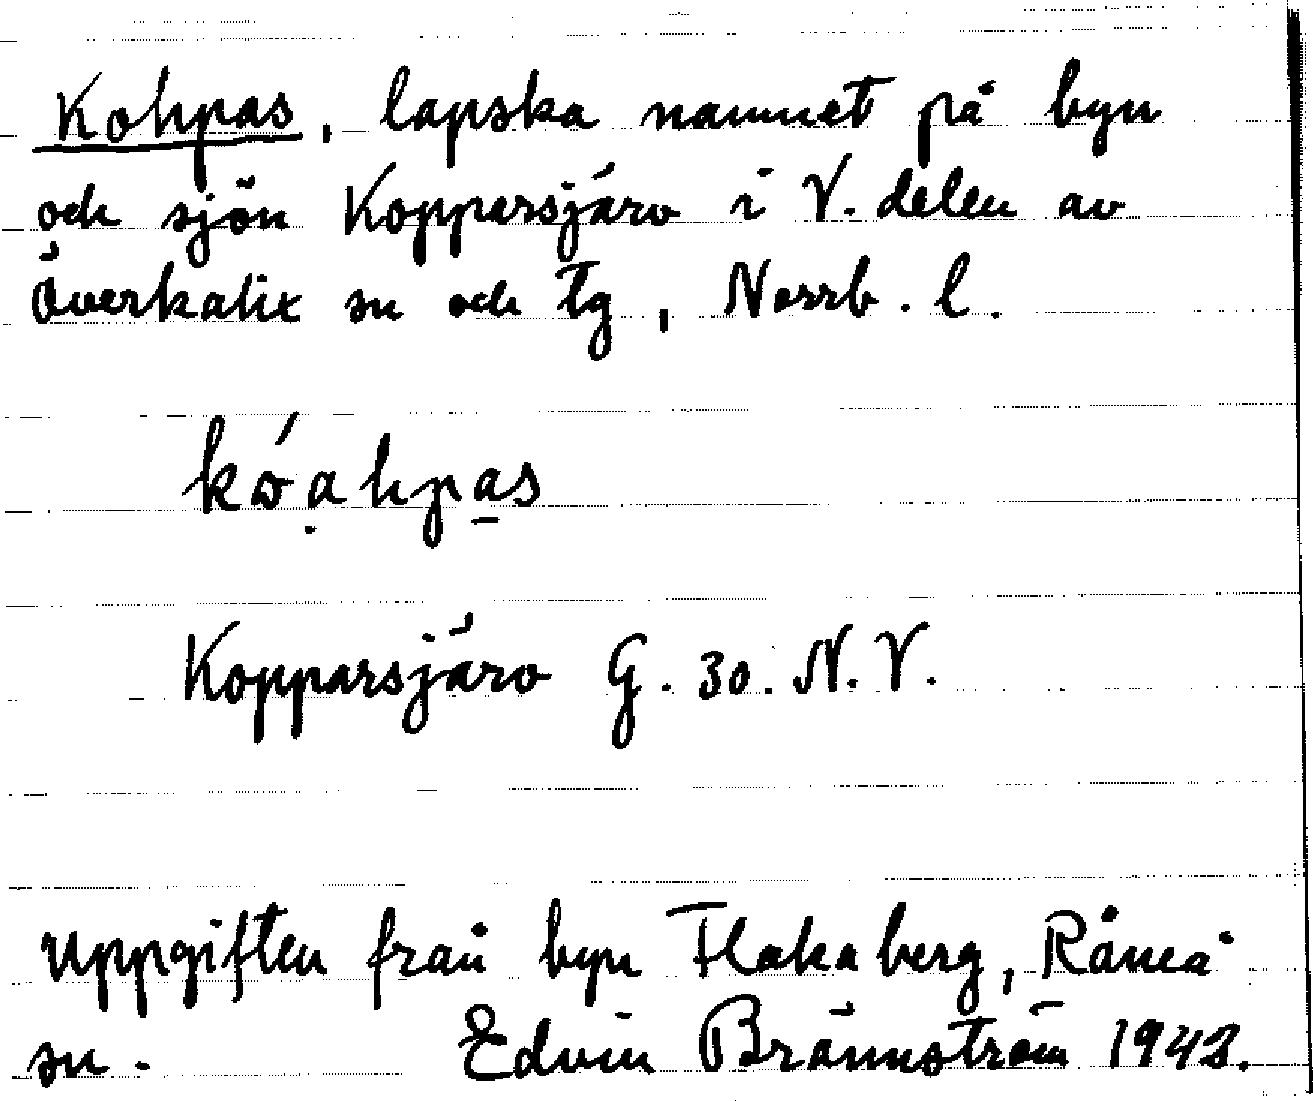 Kohpas, lapska namnet på byn
och sjön Kopparsjärv i V. delen av
Överkalix sn och tg, Norrb. l.
kóạhpa̱s
Kopparsjärv G. 30. N.V.
Uppgiften från byn Flakaberg, Råneå
sn. Edvin Brännström 1942.